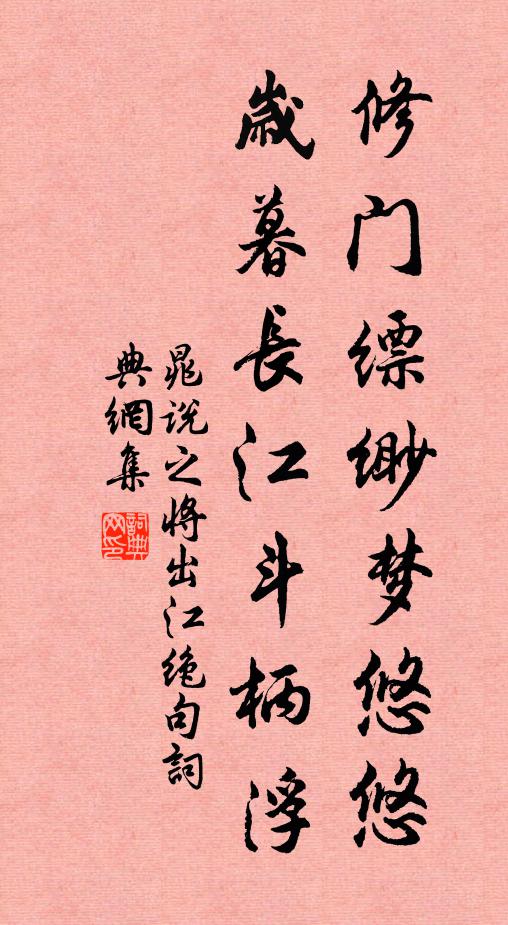 修门缥缈梦悠悠
歲暮長江斗柄浮
晁说之将出江绝句詞
典網集
詞典
网印